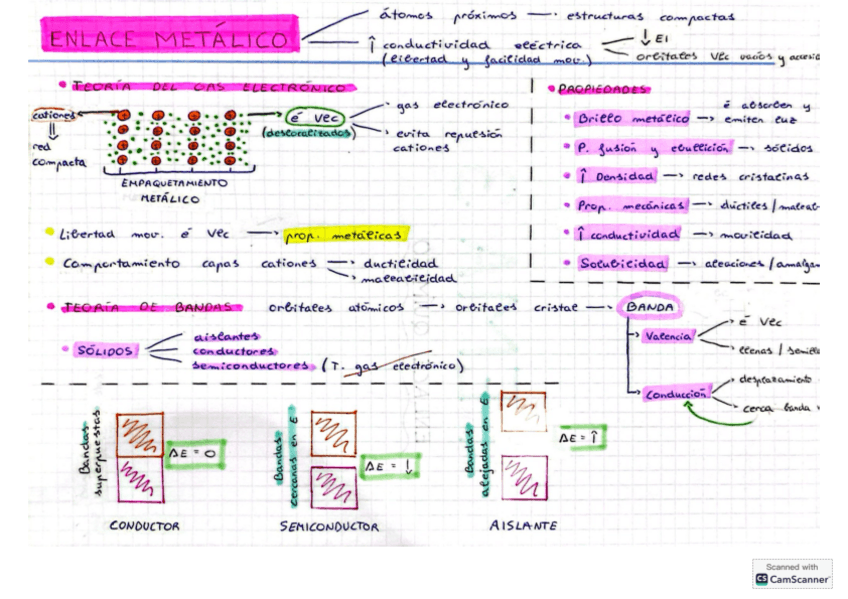 ENLACE METÁLICO
átomos próximos → estructuras compactas
↑ conductividad eléctrica
(libertad y facilidad mov.)
↓ EI
orbitales Vec vacíos y
• TEORÍA DEL GAS ELECTRÓNICO
cationes
⇓
red
compacta
EMPAQUETAMIENTO
METÁLICO
é Vec
(deslocalizados)
gas electrónico
evita repulsión
cationes
• Libertad mov. é Vec → prop. metálicas
• Comportamiento capas cationes → ductilidad
→ maleabilidad
• PROPIEDADES
• Brillo metálico → é absorben y
emiten luz
• P. fusión y ebullición → sólidos
• ↑ Densidad → redes cristalinas
• Prop. mecánicas → dúctiles / maleab
• ↑ conductividad → movilidad
• Solubilidad → aleaciones / amalgam
• TEORÍA DE BANDAS orbitales atómicos → orbitales cristal → BANDA
• SÓLIDOS
aislantes
conductores
semiconductores (T. gas electrónico)
Valencia
é Vec
llenas / semille
Conducción
desplazamiento
cerca banda v
Bandas
superpuestas
ΔE = 0
CONDUCTOR
Bandas
cercanas en E
ΔE = ↓
SEMICONDUCTOR
Bandas
alejadas en E
ΔE = ↑
AISLANTE
Scanned with
CS CamScanner